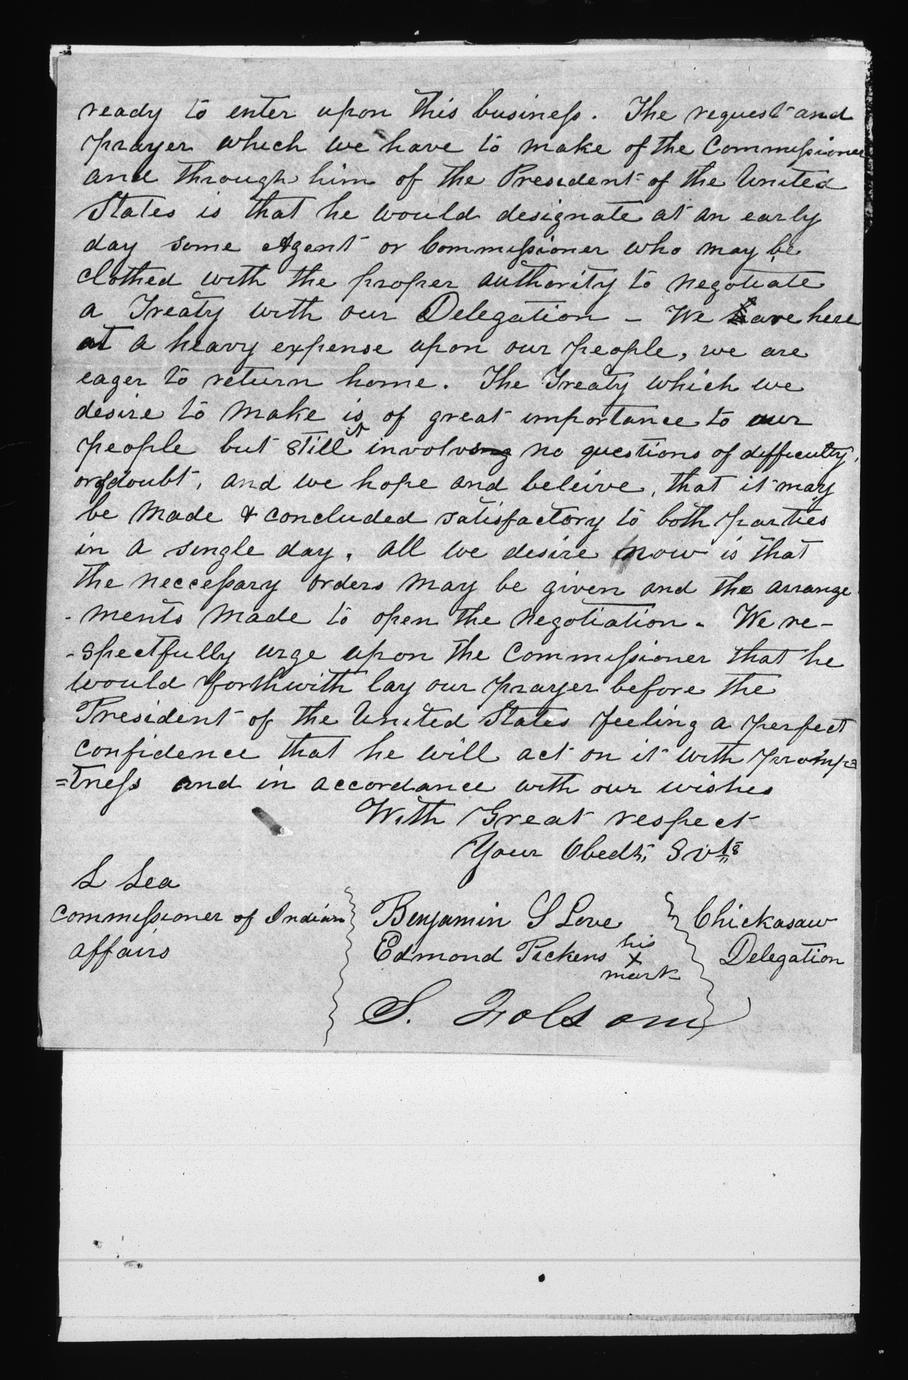 ready to enter upon this business. The request and
prayer which we have to make of the Commissioner
and through him of the President of the United
States is that he would designate at an early
day some Agent or Commissioner who may be
clothed with the proper authority to negotiate
a Treaty with our Delegation - We are here
at a heavy expense upon our people, we are
eager to return home. The Treaty which we
desire to make is of great importance to our
people but still it involves no questions of difficulty,
or doubt, and we hope and beleive, that it may
be made & concluded satisfactory to both parties
in a single day, all we desire now is that
the neccessary orders may be given and the arrange
-ments made to open the negotiation. We re-
-spectfully urge upon the Commissioner that he
would forthwith lay our prayer before the
President of the United States feeling a perfect
confidence that he will act on it with promp
=tness and in accordance with our wishes
With Great respect
Your Obedt, Svts
L Lea
Commissioner of Indian
affairs
Benjamin S Love
Edmond Pickens his
x
mark
S. Folsom
Chickasaw
Delegation